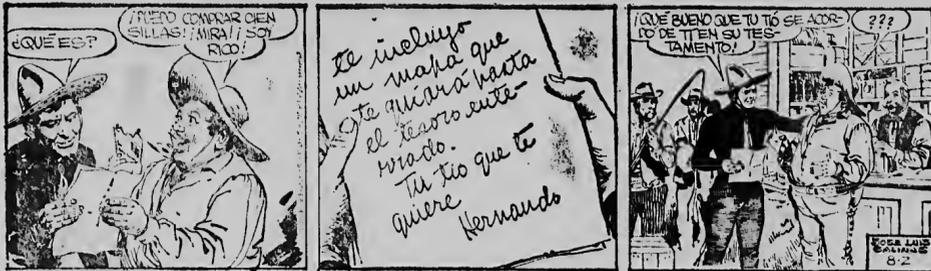 ¿QUÉ ES?
¡PUEDO COMPRAR CIEN
SILLAS! ¡MIRA! ¡SOY
RICO!
te incluyo
un mapa que
te guiará hasta
el tesoro ente-
rrado.
Tu tío que te
quiere
Hernando
¡QUÉ BUENO QUE TU TÍO SE ACOR-
DÓ DE TI EN SU TES-
TAMENTO!
???
JOSE LUIS
SALINAS
8-2